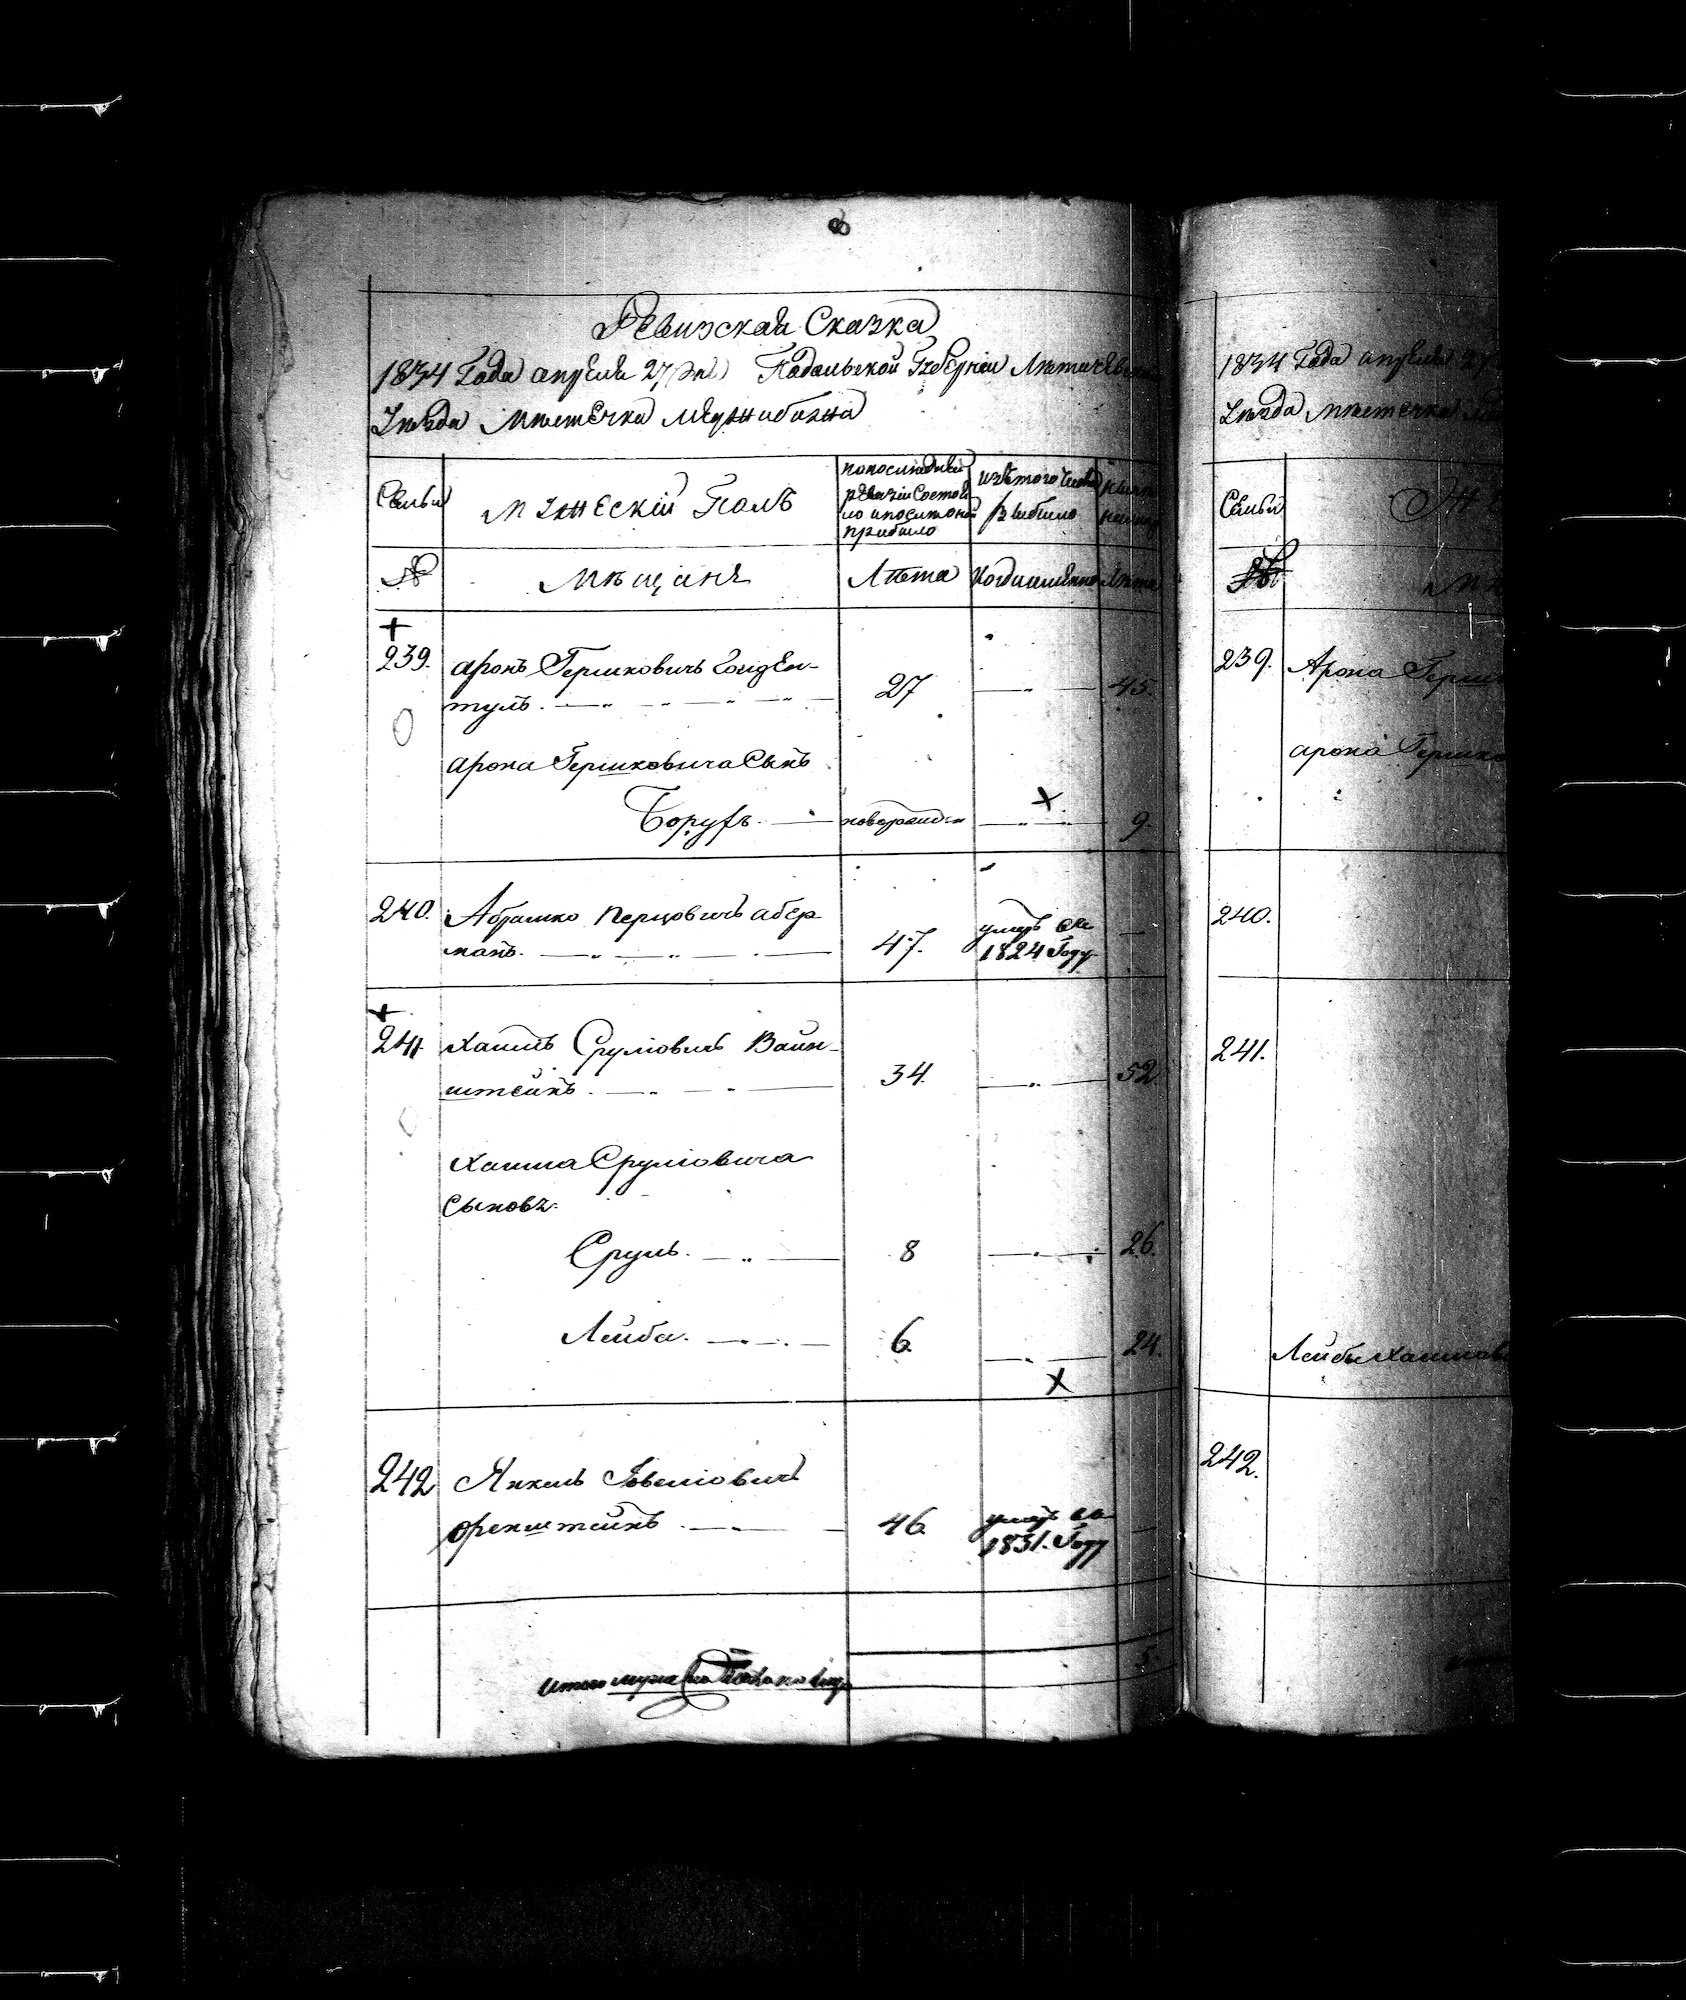 8
Ревизская Сказка
1834 Года апреля 27 дня Подольской Губернии Лѣтичевскаго
Уезда мѣстечка Меджибожа
Семьи
мужескій Полъ
попоследней
ревизіи Состоя
ло и после оной
прибыло
изъ того числа
выбыло
ныне
№
мѣщане
Лѣта
когда именно
Лѣта
239.
аронъ Гершковичъ
тулъ.
27
45.
арона Гершковича Сынъ
Борухъ.
новорожден
9.
240.
Абрамко Перцовичъ абер
манъ.
47.
умеръ въ
1824 Году
241.
Хаимъ Срулiовичъ Вайн-
штейнъ.
34.
52
Хаима Срулiовича
Сыновъ.
Сруль.
8
26.
Лейба.
6.
24.
242
Янкель
оренштейнъ
46.
умеръ въ
1831. Году
итого мужеска Пола на лицо
5.
1834 Года апреля 27
Уезда мѣстечка
Семьи
№
239.
Арона
арона
240.
241.
Лейбы
242.